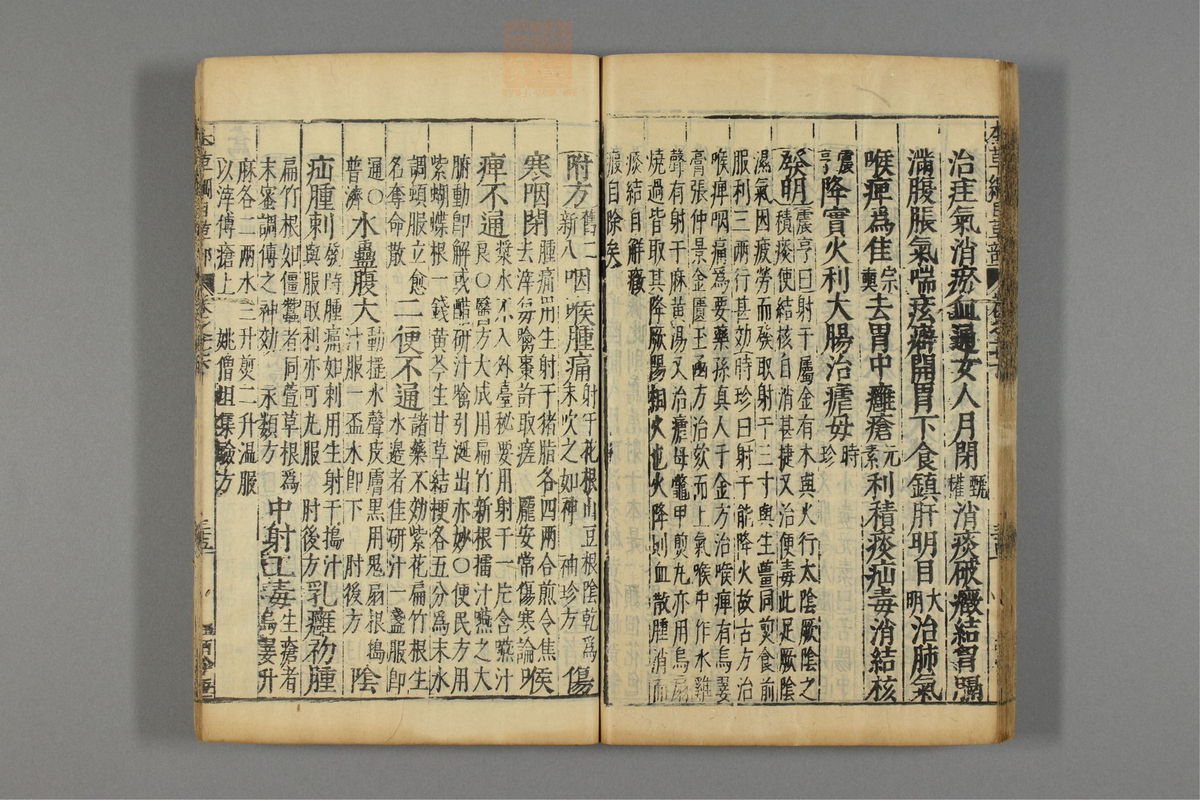 治疰氣消瘀血通女人月閉甄權消痰破癥結胷膈
滿腹脹氣喘痃癖開胃下食鎮肝明目大明治肺氣
喉痺爲佳宗奭去胃中癰瘡元素利積痰疝毒消結核
震亨降實火利大腸治瘧母時珍
發明震亨曰射干屬金有木與火行太陰厥陰之
積痰使結核自消甚捷又治便毒此足厥陰
濕氣因疲勞而發取射干三寸與生薑同煎食前
服利三兩行甚効時珍曰射干能降火故古方治
喉痺咽痛爲要藥孫真人千金方治喉痺有烏翣
膏張仲景金匱玉函方治欬而上氣喉中作水雞
聲有射干麻黃湯又治瘧母鼈甲煎丸亦用烏扇
燒過皆取其降厥陰相火也火降則血散腫消而
痰結自解癥
瘕自除矣
附方舊二新八咽喉腫痛射干花根山豆根陰乾爲末吹之如神袖珍方傷
寒咽閉腫痛用生射干猪脂各四兩合煎令焦去滓每噙棗許取瘥龐安常傷寒論喉
痺不通漿水不入外臺秘要用射干一片含嚥汁良○醫方大成用扁竹新根擂汁嚥之大
腑動即解或醋研汁噙引涎出亦妙○便民方用
紫蝴蝶根一錢黃芩生甘草桔梗各五分爲末水
調頓服立愈
名奪命散二便不通諸藥不効紫花扁竹根生水邊者佳研汁一盞服即
通○普濟水蠱腹大動搖水聲皮膚黑用鬼扇根搗汁服一盃水即下肘後方陰
疝腫刺發時腫痛如刺用生射干搗汁與服取利亦可丸服肘後方乳癰初腫
扁竹根如僵蠶者同萱草根爲
末蜜調傅之神効永類方中射工毒生瘡者烏翣升
麻各二兩水三升煎二升溫服
以滓傅瘡上姚僧坦集驗方